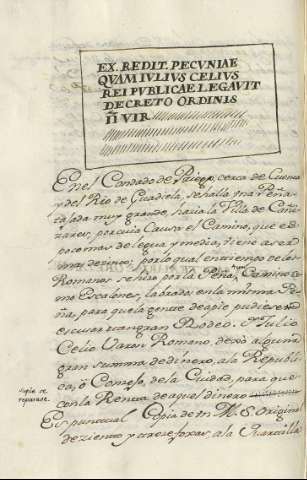 EX. REDIT. PECVNIAE
QVAM IVLIVS CELIVS
REI PVBLICAE LEGAVIT
DECRETO ORDINIS
II VIR
En el Condado de Priego, cerca de Cuenca
y del Rio de Guadiela, se halla una Peña
tajada muy grande, hacia la Villa de Cañi-
zares, por cuia Causa el Camino, que es de
poco mas de legua y media, viene a ser a
mas de cinco; por lo qual en tiempo de los
Romanos se hizo por la Peña, Camino co-
mo Escalones, labrado en la misma Pe-
ña, para que la gente de apie pudiese
escusar tan gran Rodeo. Julio
Celio Varon Romano, dexò alguna
gran summa de dinero, a la Republi-
ca, ò Consejo, de la Ciudad, para que
con la Renta de aquel dinero
Es puntual Copia de un M. S. Original
de ziento y trece foxas, a la